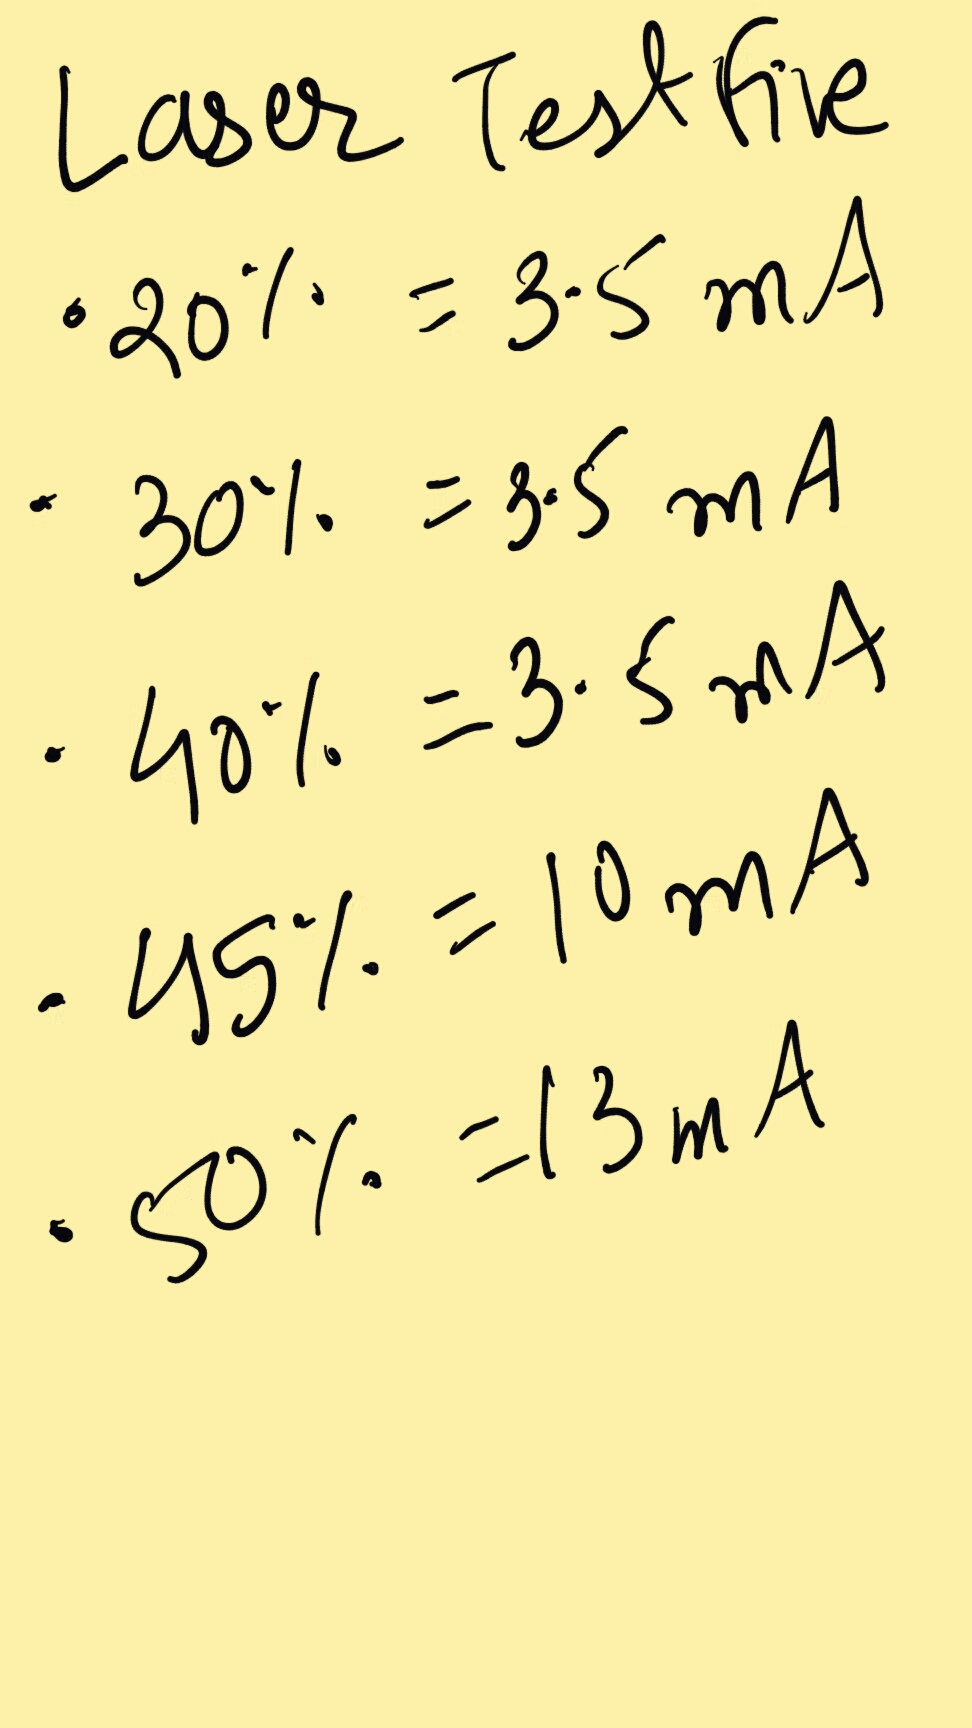 Laser Test fire
• 20% = 3.5 mA
• 30% = 3.5 mA
• 40% = 3.5 mA
• 45% = 10 mA
• 50% = 13 mA